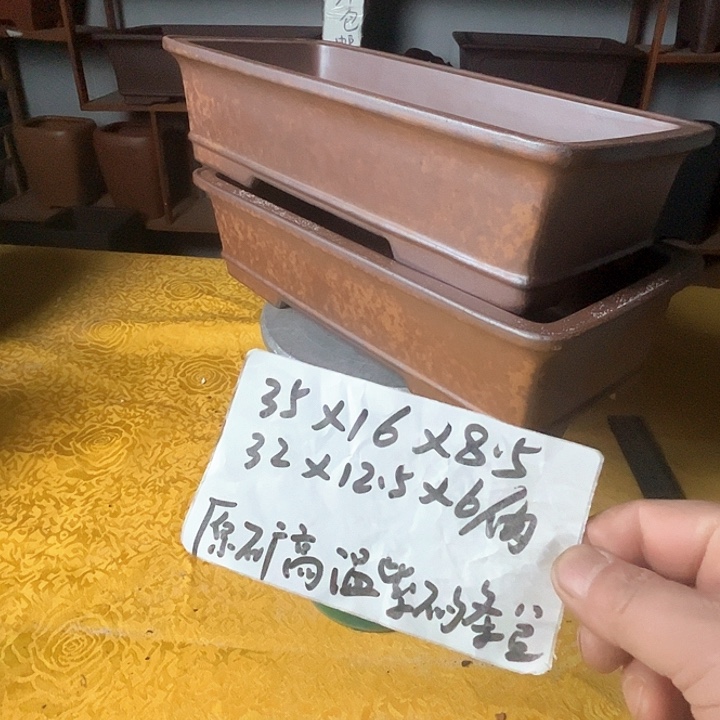 包
35×16×8.5
32×12.5×6
原矿高温紫砂条盆